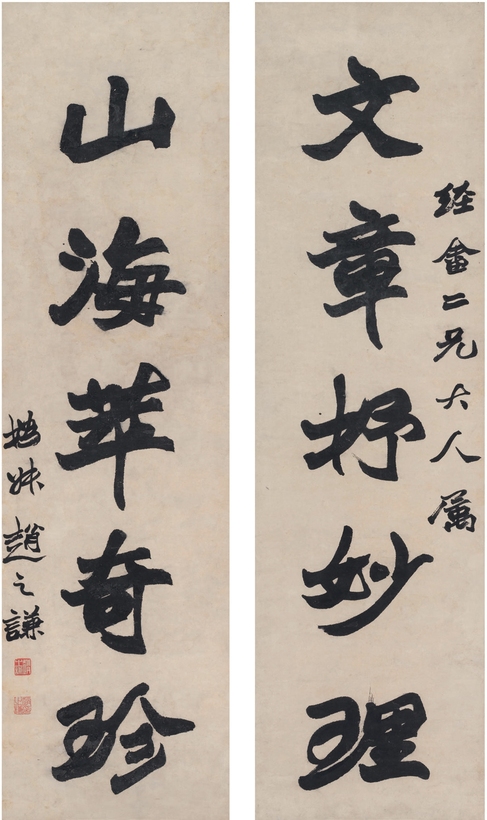 經畬二兄大人屬
文章抒妙理
山海萃奇珍
撝叔趙之謙